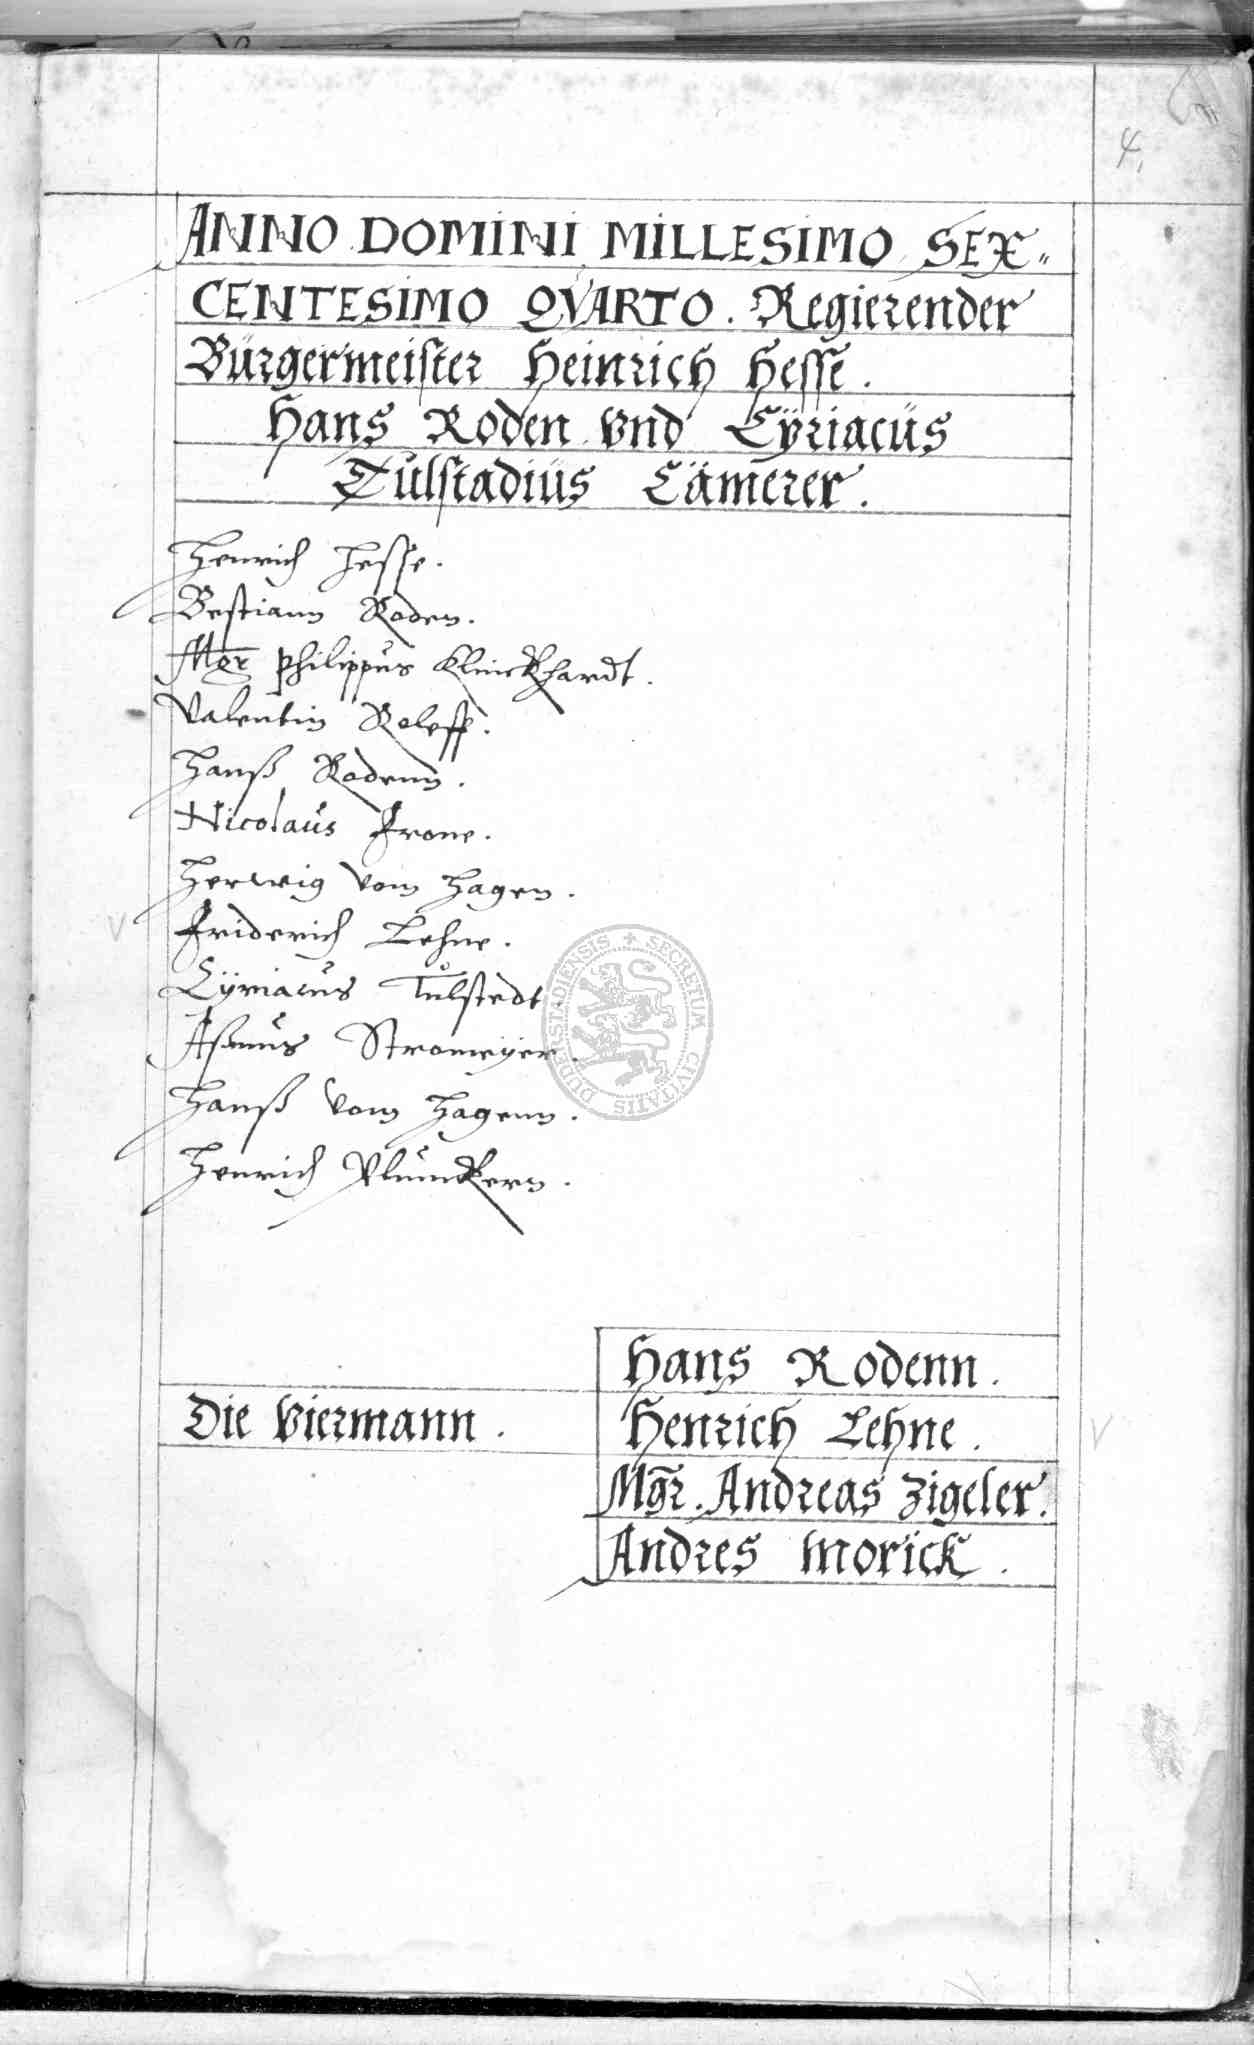 4.
ANNO DOMINI MILLESIMO SEX-
CENTESIMO QVARTO. Regierender
Bürgermeister Heinrich Hesse.
Hans Roden vnd Cÿriacüs
Tulstadiüs Cämerer.
Henrich Hesse.
Bestiann Roden.
Mgr Philippus Klinckhardt.
Valentin Roleff.
Hanß Rodenn.
Nicolaus Frone.
Herwig vom Hagen.
Friderich Lehne.
Cÿriacus Tulstedt
Aßmus Stromeÿer.
Hanß vom Hagenn.
Henrich Plünckern.
SECRETUM CIVITATIS DUDERSTADIENSIS
Hans Rodenn.
Die Viermann.
Henrich Lehne.
Mgr. Andreas Zigeler.
Andres Morick.